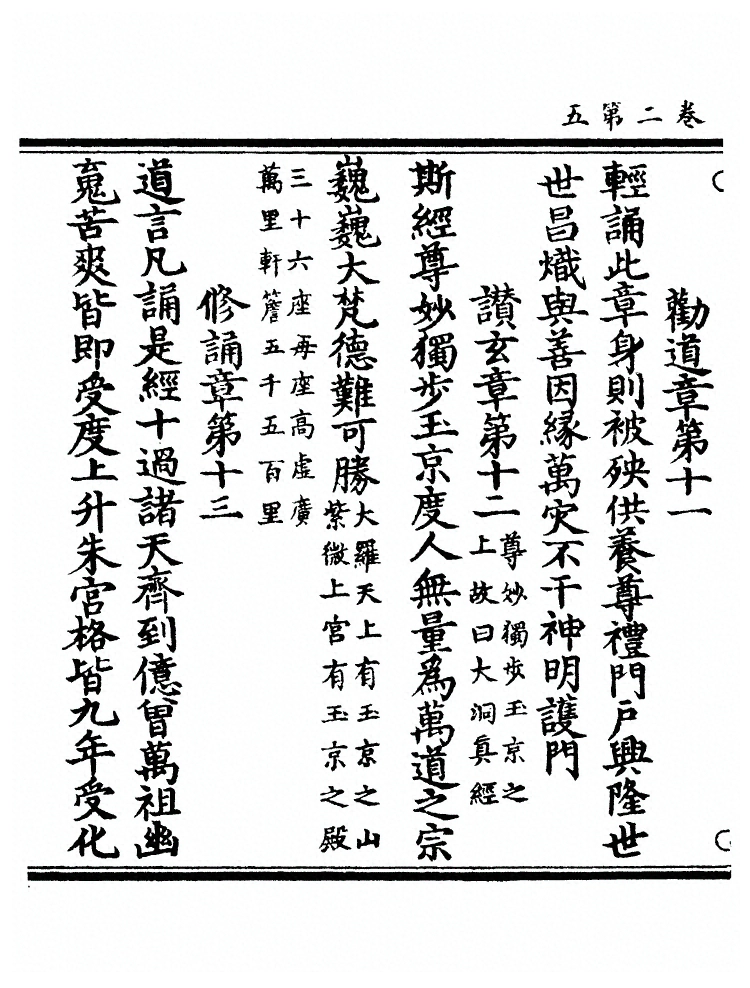 卷二第五
勸道章第十一
輕誦此章身則被殃供養尊禮門戶興隆世
世昌熾與善因緣萬灾不干神明護門
讃玄章第十二尊妙獨步玉京之
上故曰大洞真經
斯經尊妙獨步玉京度人無量為萬道之宗
巍巍大梵德難可勝大羅天上有玉京之山
紫微上宮有玉京之殿
三十六座每座高虛廣
萬里軒簷五千五百里
修誦章第十三
道言凡誦是經十過諸天齊到億曾萬祖幽
䰟苦爽皆即受度上升朱宮格皆九年受化